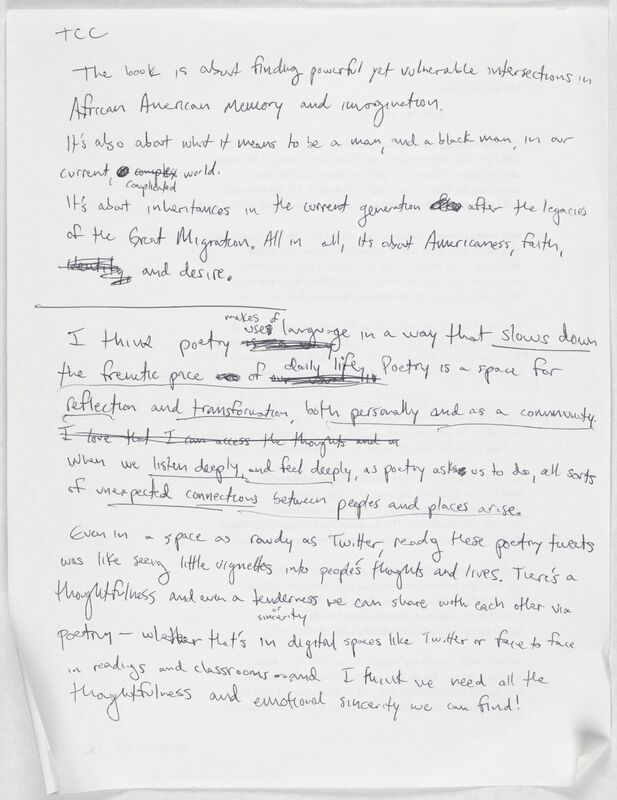 TCC
The book is about finding powerful yet vulnerable intersections in
African American Memory and imagination.
It's also about what it means to be a man, and a black man, in our
current, complex world.
complicated
It's about inheritances in the current generation after the legacies
of the Great Migration. All in all, its about Americaness, faith,
identity and desire.
makes of
I think poetry uses language in a way that slows down
the frenetic pace of daily life. Poetry is a space for
reflection and transformation, both personally and as a community.
I love that I can access the thoughts and
when we listen deeply, and feel deeply, as poetry asks us to do, all sorts
of unexpected connections between peoples and places arise.
Even in a space as rowdy as Twitter, reading these poetry tweets
was like seeing little vignettes into people's thoughts and lives. There's a
thoughtfulness and even a tenderness we can share with each other via
or sincerity
poetry — whether that's in digital spaces like Twitter or face to face
in readings and classrooms and I think we need all the
thoughtfulness and emotional sincerity we can find!